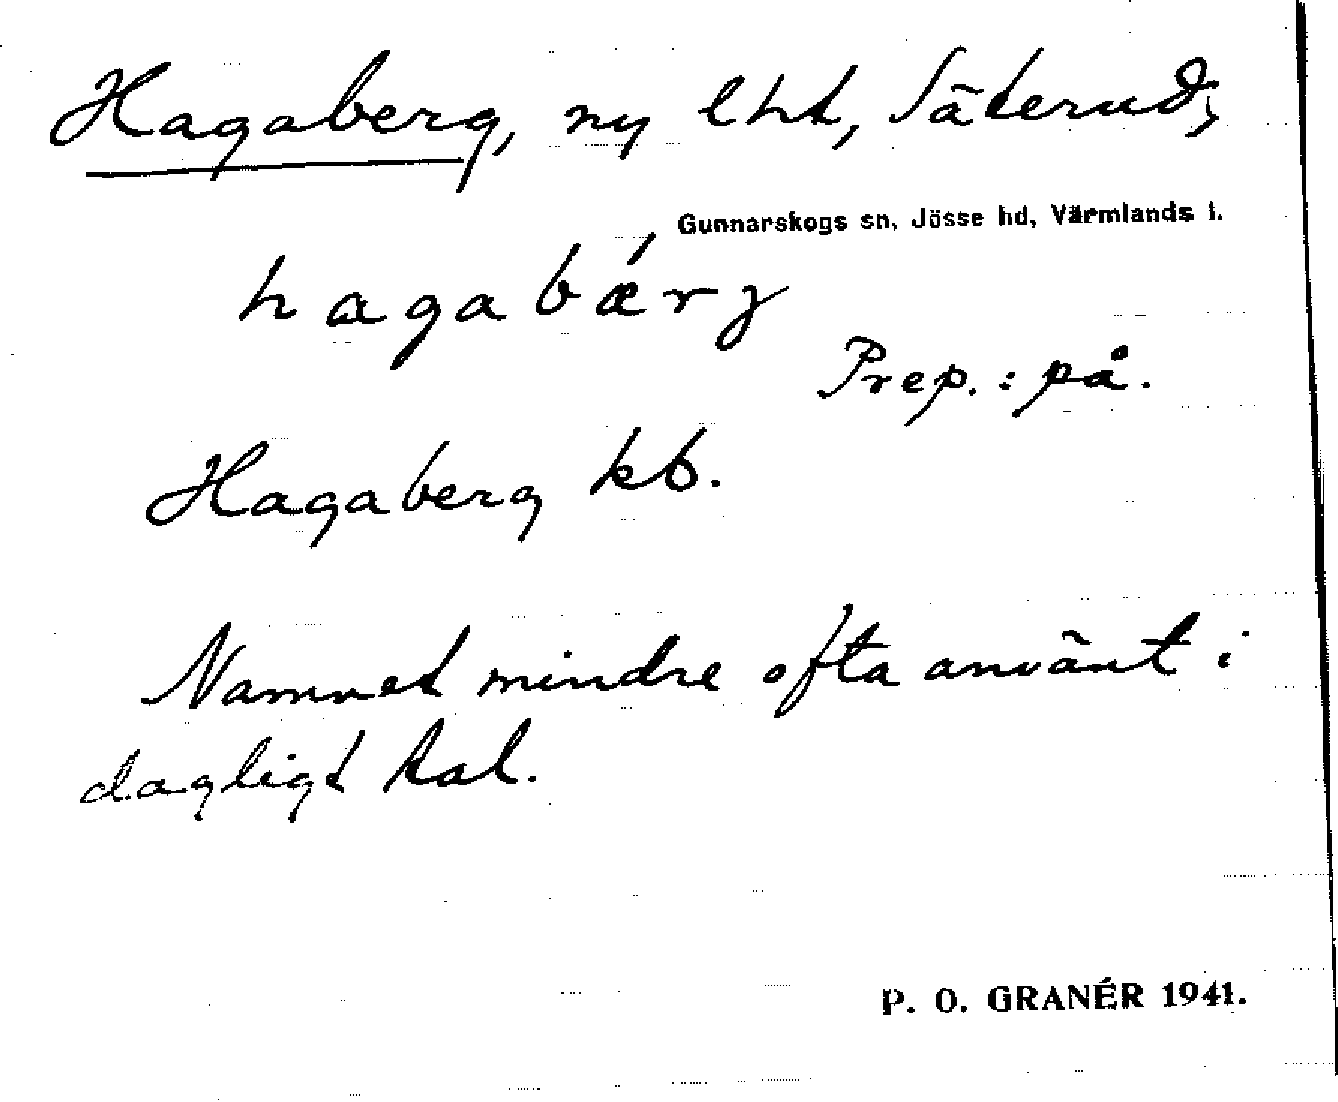 Hagaberg, ny lht, Säterud,
Gunnarskogs sn, Jösse hd, Värmlands l.
hagabǽrj
Prep. : på.
Hagaberg kb.
Namnet mindre ofta använt i
dagligt tal.
P. O. GRANÉR 1941.